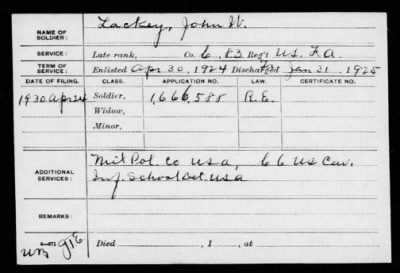 NAME OF SOLDIER: Lackey, John W.
SERVICE: Late rank, Co. C, 83 Reg't US. F.A.
TERM OF SERVICE: Enlisted Apr 30, 1924 Discharged Jan 31, 1925
DATE OF FILING. CLASS. APPLICATION NO. LAW. CERTIFICATE NO.
1930 Apr 24 Soldier, 1,666,588 R.E.
Widow,
Minor,
ADDITIONAL SERVICES: Mil Pol. Co USA,
US Cav.
Inf. School Det. USA
REMARKS:
Died , 1 , at